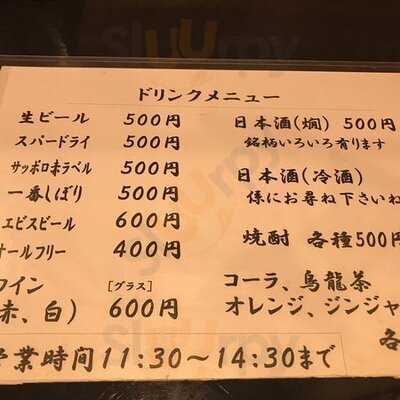 ドリンクメニュー
生ビール 500円
スパードライ 500円
サッポロ赤ラベル 500円
一番しぼり 500円
エビスビール 600円
オールフリー 400円
ワイン [グラス]
(赤、白) 600円
日本酒(燗) 500円
銘柄いろいろ有ります
日本酒(冷酒)
係にお尋ね下さいね
焼酎 各種500円
コーラ、烏龍茶
オレンジ、ジンジャ
各
営業時間11:30～14:30まで
Sluurpy